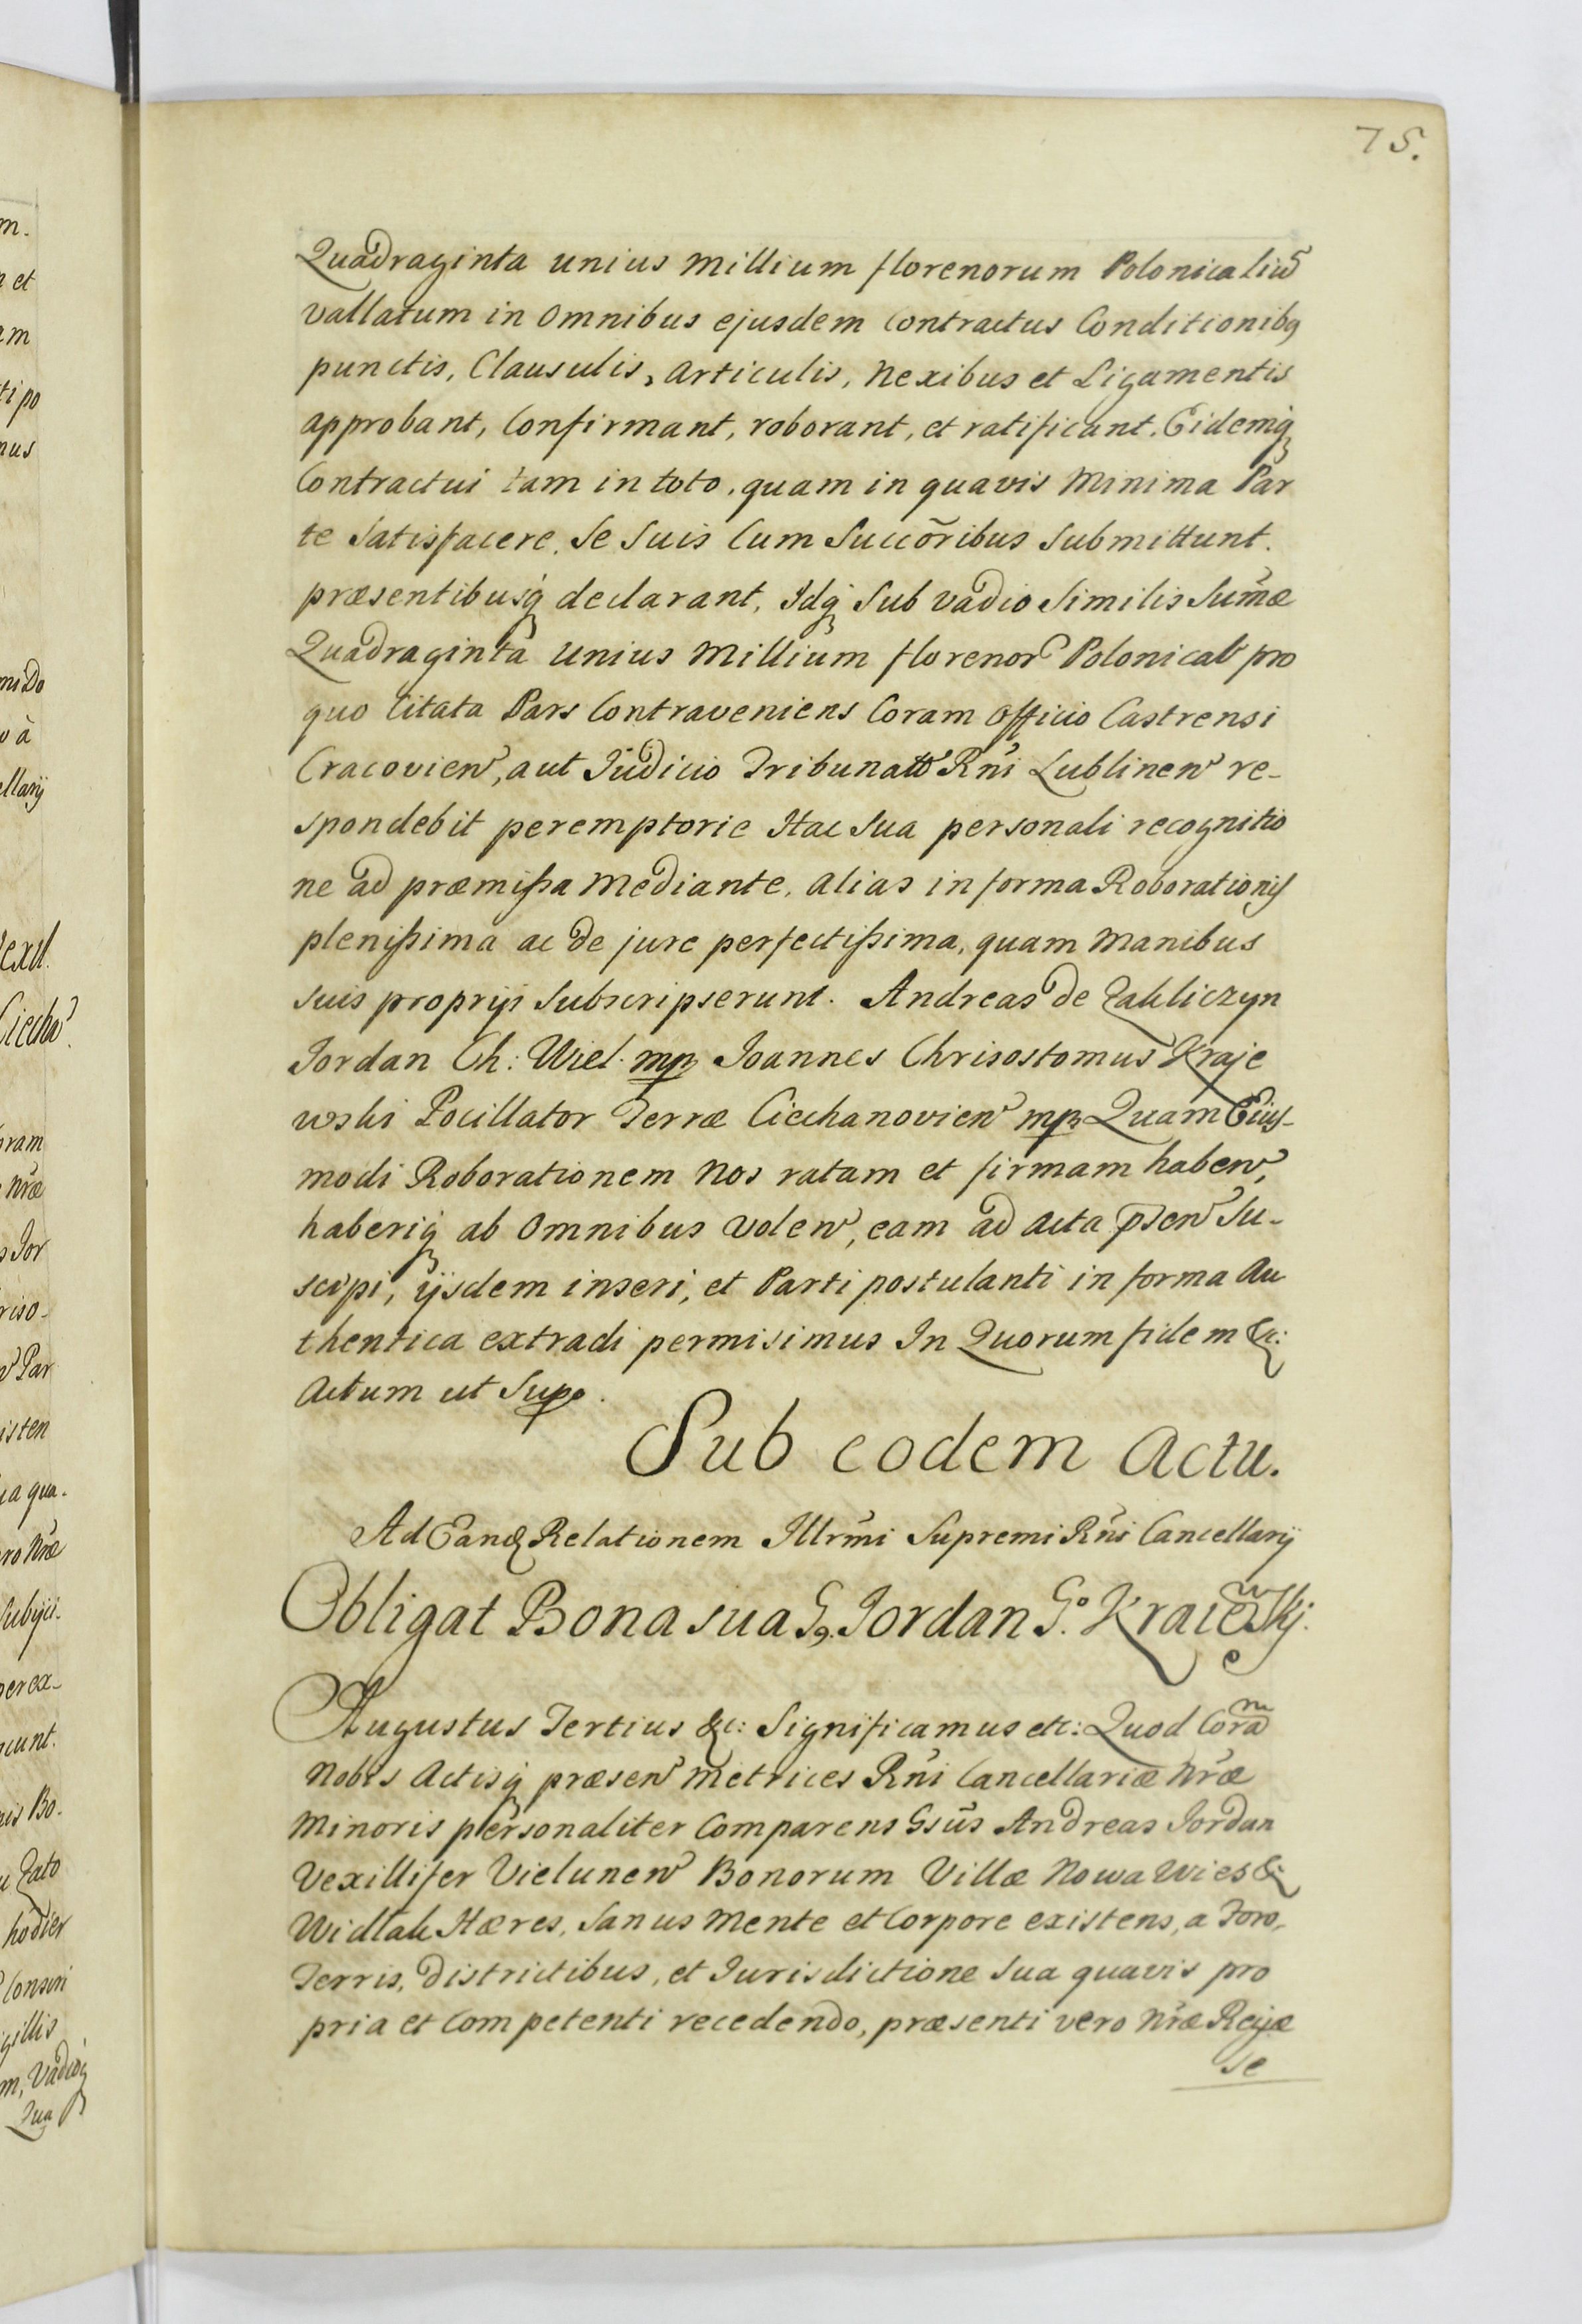 75.
Quadraginta unius Millium florenorum Polonicaliũ
vallatum in Omnibus ejusdem Contractus Conditionibq
punctis, Clausulis, Articulis, Nexibus et Ligamentis
approbant, Confirmant, roborant, et ratificant. Eidemq
Contractui tam in toto, quam in quavis Minima Par
te satisfacere, se suis Cum Succõribus submittunt.
præsentibusq declarant, Idq Sub vadio Similis Sum̃æ
Quadraginta unius Millium florenor Polonical pro
quo Citata Pars Contraveniens Coram Officio Castrensi
Cracovien, aut Judicio Tribunalt Rñi Lublinen re-
spondebit peremptorie Hac Sua personali recognitio
ne ad præmißa Mediante, alias in forma Roborationis
plenißima ac de jure perfectißima, quam Manibus
suis proprijs subscripserunt. Andreas de Zakliczyn
Jordan Ch: Wiel. mp Joannes Chrisostomus Kraje
wski Pocillator Terræ Ciechanovien mp Quam Eius-
modi Roborationem Nos ratam et firmam haben,
haberiq ab Omnibus volen, eam ad Acta p̃sen Su-
scipi, ijsdem inseri, et Parti postulanti in forma Au
thentica extradi permisimus In Quorum fidem &c:
Actum ut Sup.
Sub eodem Actu.
Ad Eand Relationem Illrm̃i Supremi Rñi Cancellarij
Obligat Bona sua G. Jordan Gº. Kraiewskj.
Augustus Tertius &c: Significamus etc: Quod Coram
Nobis Actisq præsen Metrices Rñi Cancellariæ Nr̃æ
Minoris personaliter Comparens Gsũs Andreas Jordan
Vexillifer Vielunen Bonorum Villæ Nowawies &
Widlak Hæres, Sanus Mente et Corpore existens, a Foro,
Terris, Districtibus, et Jurisdictione Sua quavis pro
pria et Competenti recedendo, præsenti vero Nr̃æ Regiæ
se